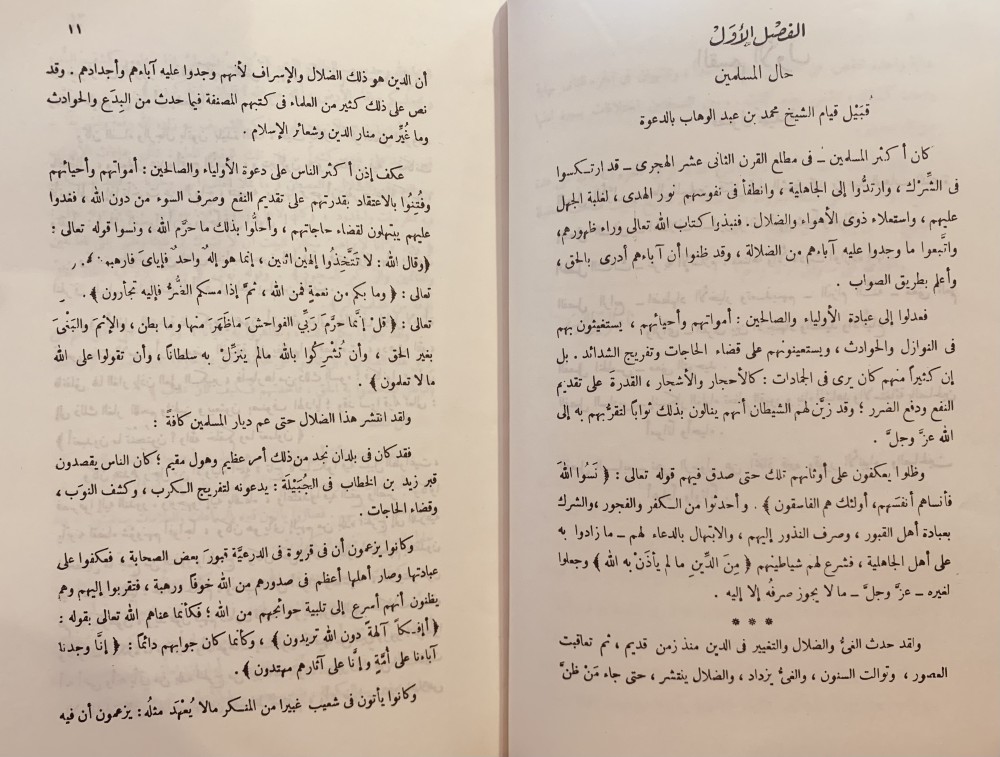 الفصْل الأوَل
حال المسلمين
قُبَيْل قيام الشيخ محمد بن عبد الوهاب بالدعوة
كان أكثر المسلمين ــ فى مطلع القرن الثانى عشر الهجرى ــ قد ارتكسوا
فى الشِّرْك ، وارتدُّوا إلى الجاهلية ، وانطفأ فى نفوسهم نور الهدى ، لغلبة الجهل
عليهم ، واستعلاء ذوى الأهواء والضلال . فنبذوا كتاب الله تعالى وراء ظهورهم ،
واتَّبعوا ما وجدوا عليه آباءهم من الضلالة ، وقد ظنوا أن آباءهم أدرى بالحق ،
وأعلم بطريق الصواب .
فعدلوا إلى عبادة الأولياء والصالحين : أمواتهم وأحيائهم ، يستغيثون بهم
فى النوازل والحوادث ، ويستعينونهم على قضاء الحاجات وتفريج الشدائد . بل
إن كثيراً منهم كان يرى فى الجمادات : كالأحجار والأشجار ، القدرةَ على تقديم
النفع ودفع الضرر ؛ وقد زيَّن لهم الشيطان أنهم ينالون بذلك ثواباً لتقرُّبهم به إلى
الله عزَّ وجلَّ .
وظلوا يعكفون على أوثانهم تلك حتى صدق فيهم قوله تعالى : ﴿ نَسُوا اللهَ
فأنساهم أنفسَهم، أولئك هم الفاسقون ﴾ . وأحدثوا من الكفر والفجور ،والشرك
بعبادة أهل القبور ، وصرف النذور إليهم ، والابتهال بالدعاء لهم ــ ما زادوا به
على أهل الجاهلية ، فشرع لهم شياطينهم ﴿ مِنَ الدِّينِ ما لم يأذَنْ به الله ﴾ وجعلوا
لغيره ــ عزَّ وجلَّ ــ ما لا يجوز صرفُه إلا إليه .
* * *
ولقد حدث الغىُّ والضلال والتغيير فى الدين منذ زمن قديم ، ثم تعاقبت
العصور ، وتوالت السنون ، والغىُّ يزداد ، والضلال ينتشر ، حتى جاء مَنْ ظنَّ
١١
أن الدين هو ذلك الضلال والإسراف لأنهم وجدوا عليه آباءهم وأجدادهم . وقد
نص على ذلك كثير من العلماء فى كتبهم المصنفة فيما حدث من البِدَع والحوادث
وما غُيِّر من منار الدين وشعائر الإسلام .
عكف إذن أكثر الناس على دعوة الأولياء والصالحين : أمواتهم وأحيائهم
وفُتِنُوا بالاعتقاد بقدرتهم على تقديم النفع وصرف السوء من دون الله ، فغدوا
عليهم يبتهلون لقضاء حاجاتهم ، وأحلُّوا بذلك ما حرَّم الله ، ونسوا قوله تعالى :
﴿وقال الله : لا تَتَّخِذُوا إلهَين اثنين ، إنما هو إلهٌ واحدٌ فإياىَ فارهبو
تعالى : ﴿ وما بكم من نعمةٍ فمن الله ، ثمَّ إذا مسكم الضُّرُّ فإليه تجأرون ﴾ .
تعالى : ﴿ قلْ إنَّما حرَّمَ رَبِّي الفواحشَ ماظَهَرَ منها وما بطن ، والإثمَ والبَغْىَ
بغير الحق ، وأن تُشْرِكُوا بالله مالم ينزِّلْ به سلطاناً ، وأن تقولوا على الله
ما لا تعلمون ﴾ .
ولقد انتشر هذا الضلال حتى عم ديار المسلمين كافةً :
فقد كان فى بلدان نجد من ذلك أمر عظيم وهول مقيم ؛ كان الناس يقصدون
قبر زيد بن الخطاب فى الجُبَيْلَة : يدعونه لتفريج الكرب ، وكشف النُّوَب ،
وقضاء الحاجات .
وكانوا يزعمون أن فى قريوة فى الدرعيَّة قبورَ بعض الصحابة ، فعكفوا على
عبادتها وصار أهلها أعظم فى صدورهم من الله خوفاً ورهبة ، فتقربوا إليهم وهم
يظنون أنهم أسرع إلى تلبية حوائجهم من الله ؛ فكأنما عناهم الله تعالى بقوله :
﴿ أئِفْكاً آلهةً دون الله تريدون ﴾ ، وكأنما كان جوابهم دائماً : ﴿ إنَّا وجدنا
آباءنا على أُمَّةٍ وإنَّا على آثارهم مهتدون ﴾ .
وكانوا يأتون فى شعيب غبيرا من المنكر مالا يُعْهَد مثلُه : يزعمون أن فيه